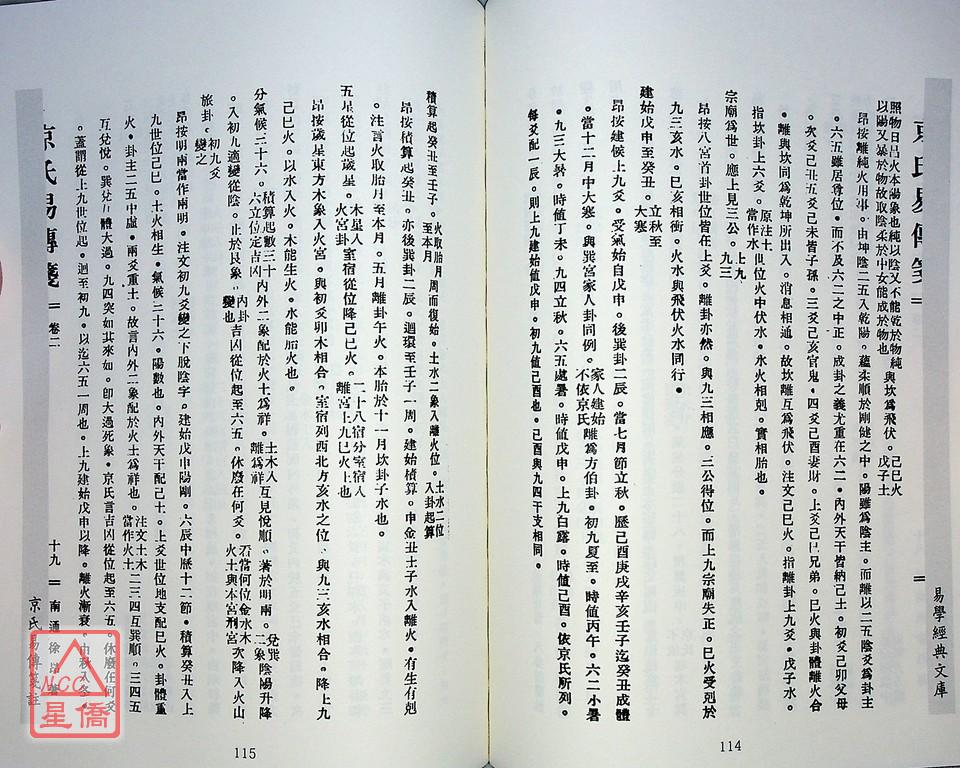 京氏易傳箋
易學經典文庫
照物日昌火本陽象也純以陰又不能乾於物純
以陽又暴於物故取陰柔於中女能成於物也
與坎爲飛伏。己巳火 戊子土
昂按離純火用事。由坤陰二五入乾陽。蘊柔順於剛健之中。陽雖爲陰主。而離以二五陰爻爲卦主
。六五雖居尊位。而不及六二之中正。成卦之義尤重在六二。內外天干皆納己土。初爻己卯父母
。次爻己丑五爻己未皆子孫。三爻己亥官鬼。四爻己酉妻財。上爻己巳兄弟。巳火與卦體離火合
。離與坎同爲乾坤所出入。消息相通。故坎離互爲飛伏。注文己巳火。指離卦上九爻。戊子水。
指坎卦上六爻。原注土當作水世位火中伏水。水火相剋。實相胎也。
宗廟爲世。應上見三公。上九 九三
昂按八宮首卦世位皆在上爻。離卦亦然。與九三相應。三公得位。而上九宗廟失正。巳火受剋於
九三亥水。巳亥相衝。火水與飛伏火水同行。
建始戊申至癸丑。立秋至 大寒
昂按建候上九爻。受氣始自戊申。後巽卦二辰。當七月節立秋。歷己酉庚戌辛亥壬子迄癸丑成體
。當十二月中大寒。與巽宮家人卦同例。家人建始 不依京氏離爲方伯卦。初九夏至。時値丙午。六二小暑
。九三大暑。時値丁未。九四立秋。六五處暑。時値戊申。上九白露。時値己酉。依京氏所列。
每爻配一辰。則上九建始値戊申。初九値己酉也。己酉與九四干支相同。
114
積算起癸丑至壬子。火取胎月 至本月周而復始。土水二象入離火位。土水二位 入卦起算
昂按積算起癸丑。亦後巽卦二辰。迴環至壬子一周。建始積算。申金丑土子水入離火。有生有剋
。注言火取胎月至本月。五月離卦午火。本胎於十一月坎卦子水也。
五星從位起歲星。木星入 火宮卦室宿從位降己巳火。二十八宿分室宿入 離宮上九巳火上也
昂按歲星東方木象入火宮。與初爻卯木相合。室宿列西北方亥水之位。與九三亥水相合。降上九
己巳火。以水入火。木能生火。水能胎火也。
分氣候三十六。積算起數三十 六立位定吉凶內外二象配於火土爲祥。土木入 離爲祥互見悅順。著於明兩。兌巽 二象陰陽升降
。入初九適變從陰。止於艮象。內卦 變也吉凶從位起至六五。休廢在何爻。看當何位金水木 火土與本宮刑宮次降入火山
旅卦。初九爻 變之
昂按明兩當作兩明。注文初九爻變之下脫陰字。建始戊申陽剛。六辰中歷十二節。積算癸丑入上
九世位己巳。土火相生。氣候三十六。陽數也。內外天干配己土。上爻世位地支配巳火。卦體重
火。卦主二五中虛。兩爻重土。故言內外二象配於火土爲祥也。注文土木 當作火土二三四互巽順。三四五
互兌悅。巽兌二體大過。九四突如其來如。卽大過死象。京氏言吉凶從位起至六五。休廢在何爻
。蓋謂從上九世位起。迴至初九。以迄六五一周也。上九建始戊申以降。離火漸衰。由秋入冬。
京氏易傳箋
卷二
十九
南通徐昂著
京氏易傳箋註
115
NCC
星僑